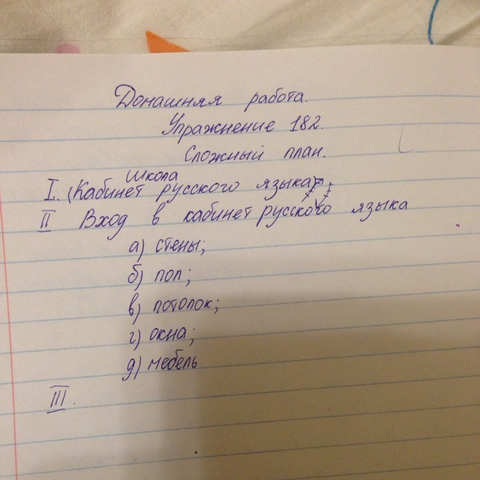 Домашняя работа.
Упражнение 182.
Сложный план.
школа
I. (Кабинет русского языка);
II Вход в кабинет русского языка
а) стены;
б) пол;
в) потолок;
г) окна;
д) мебель
III.